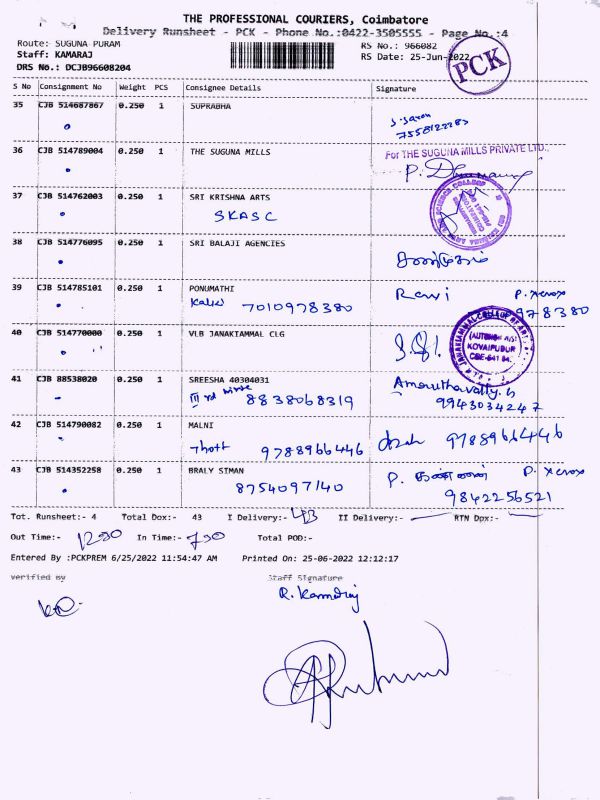 THE PROFESSIONAL COURIERS, Coimbatore
Delivery Runsheet - PCK - Phone No.:0422-3505555 - Page No.:4
Route: SUGUNA PURAM
Staff: KAMARAJ
DRS No.: DCJB96608204
RS No.: 966082
RS Date: 25-Jun-2022
PCK
S No Consignment No Weight PCS Consignee Details Signature
35 CJB 514687867 0.250 1 SUPRABHA
36 CJB 514789004 0.250 1 THE SUGUNA MILLS
For THE SUGUNA MILLS PRIVATE LTD.,
37 CJB 514762003 0.250 1 SRI KRISHNA ARTS
SKASC
38 CJB 514776095 0.250 1 SRI BALAJI AGENCIES
39 CJB 514785101 0.250 1 PONUMATHI Ravi P. xerox
7010978380 978380
40 CJB 514770000 0.250 1 VLB JANAKIAMMAL CLG
KOVAIPUDUR
CBE-641 042
41 CJB 88538020 0.250 1 SREESHA 40304031 Amaruthavally.
8838068319 9943034247
42 CJB 514790082 0.250 1 MALNI
9788966446 9788966446
43 CJB 514352258 0.250 1 BRALY SIMAN P. P. xerox
8754097140 9842256521
Tot. Runsheet:- 4 Total Dox:- 43 I Delivery:- 43 II Delivery:- RTN Dox:-
Out Time:- 1230 In Time:- 730 Total POD:-
Entered By :PCKPREM 6/25/2022 11:54:47 AM Printed On: 25-06-2022 12:12:17
Verified By Staff Signature
R. Kamaraj